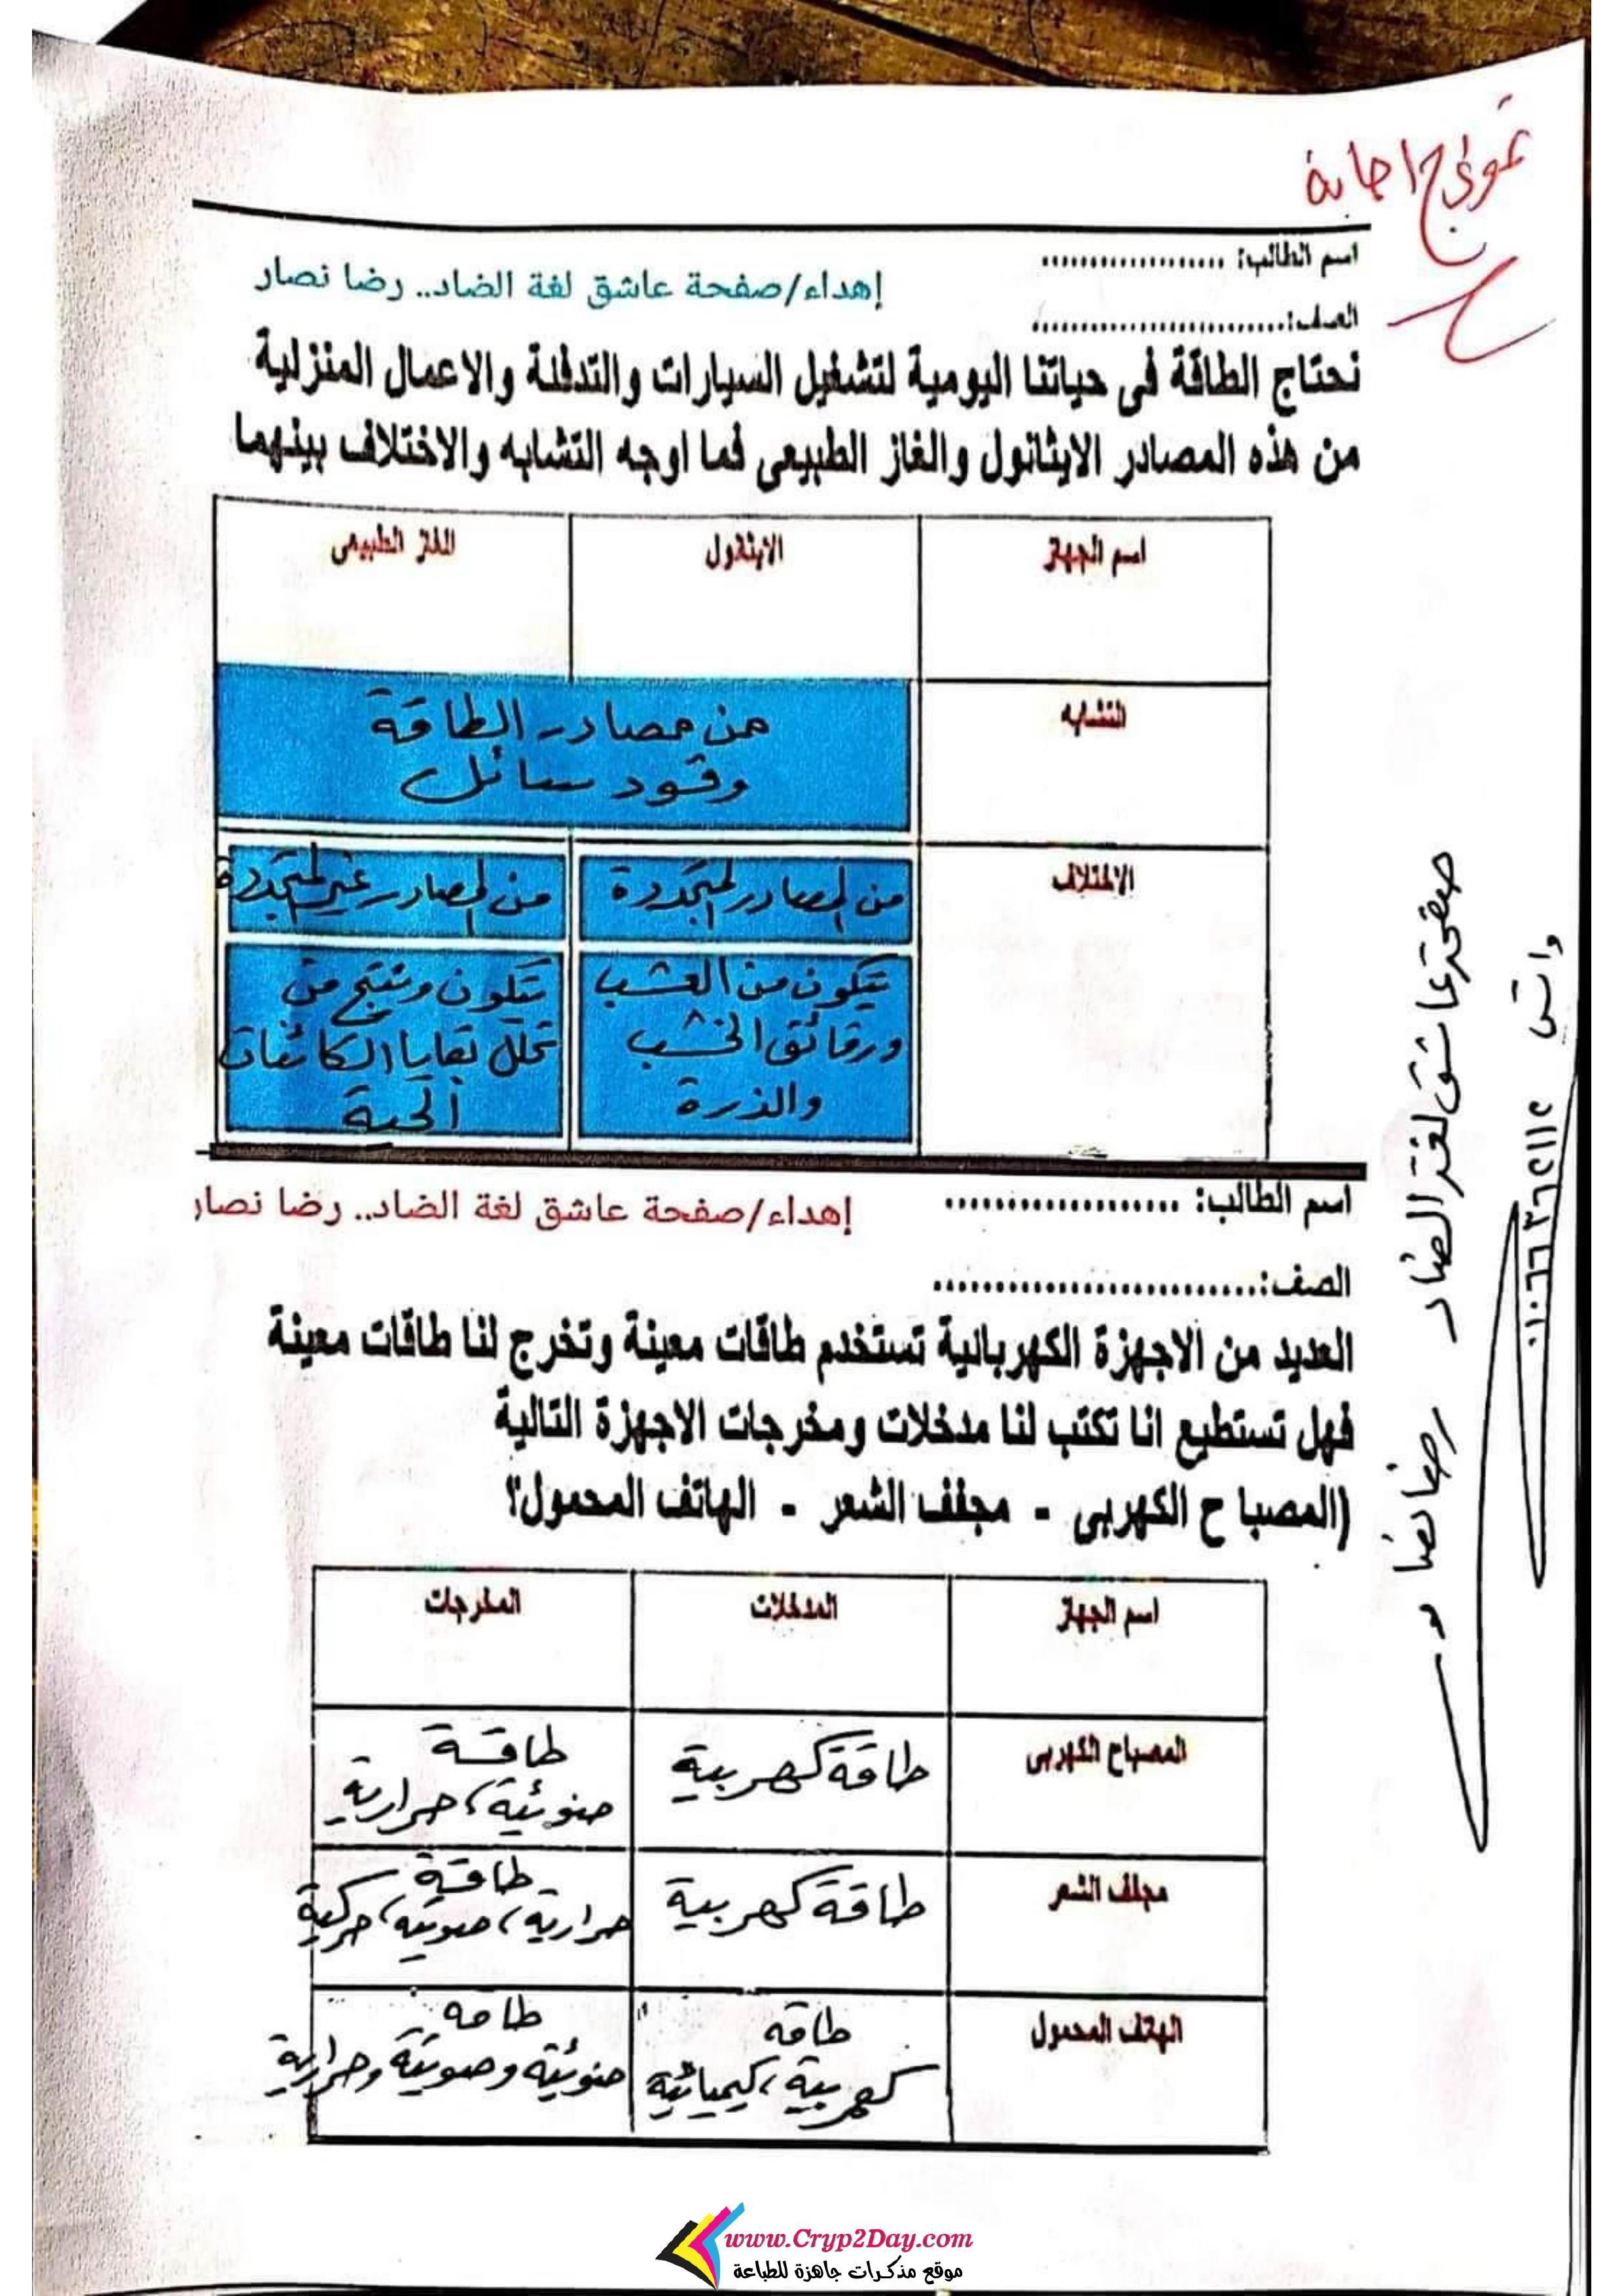 نموذج اجابة
اسم الطالب: ...................
إهداء/صفحة عاشق لغة الضاد.. رضا نصار
الصف:..........................
نحتاج الطاقة فى حياتنا اليومية لتشغيل السيارات والتدفئة والاعمال المنزلية
من هذه المصادر الايثانول والغاز الطبيعى فما اوجه التشابه والاختلاف بينهما
اسم الجهاز الايثانول الغاز الطبيعى
التشابه من مصادر الطاقة
وقود سائل
الاختلاف من المصادر المتجددة من المصادر غير المتجددة
تتكون من العشب
ورقائق الخشب
والذرة
تتكون وتنتج من
تحلل بقايا الكائنات
الحية
اسم الطالب: ...................
إهداء/صفحة عاشق لغة الضاد.. رضا نصار
الصف:..........................
العديد من الاجهزة الكهربائية تستخدم طاقات معينة وتخرج لنا طاقات معينة
فهل تستطيع انا تكتب لنا مدخلات ومخرجات الاجهزة التالية
(المصبا ح الكهربى - مجفف الشعر - الهاتف المحمول؟
اسم الجهاز المدخلات المخرجات
المصباح الكهربى طاقة كهربية طاقة
ضوئية، حرارية
مجفف الشعر طاقة كهربية طاقة
حرارية، صوتية، حركية
الهاتف المحمول طاقة
كهربية، كيميائية
طاقة
ضوئية وصوتية وحرارية
صفحة عاشق لغة الضاد رضا نصار
واتس
www.Cryp2Day.com
موقع مذكرات جاهزة للطباعة